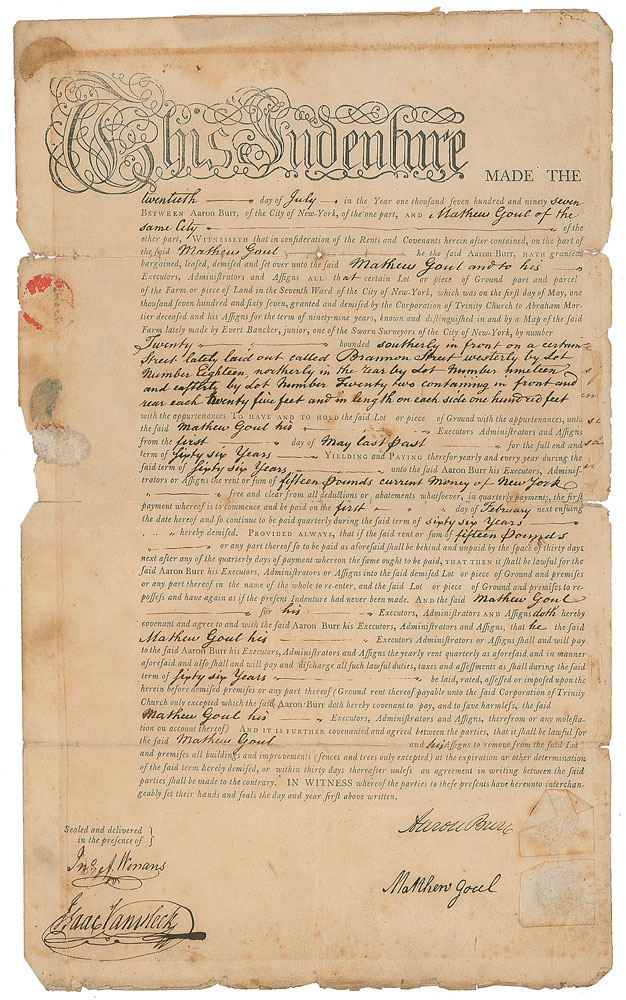 This Indenture MADE THE
twentieth day of July in the Year one thouſand ſeven hundred and ninety ſeven
BETWEEN Aaron Burr, of the City of New-York, of the one part, AND Mathew Goul of the
same City of the
other part, WITNESSETH that in conſideration of the Rents and Covenants herein after contained, on the part of
the ſaid Mathew Goul he the ſaid Aaron Burr, HATH granted
bargained, leaſed, demiſed and ſet over unto the ſaid Mathew Goul and to his
Executors, Adminiſtrators and Aſſigns ALL that certain Lot or piece of Ground part and parcel
of the Farm or piece of Land in the Seventh Ward of the City of New-York, which was on the firſt day of May, one
thouſand ſeven hundred and ſixty ſeven, granted and demiſed by the Corporation of Trinity Church to Abraham Mor-
tier deceaſed and his Aſſigns for the term of ninety-nine years, known and diſtinguiſhed in and by a Map of the ſaid
Farm lately made by Evert Bancker, junior, one of the Sworn Surveyors of the City of New-York, by number
Twenty bounded southerly in front on a certain
Street lately laid out called Brannon Street westerly by Lot
Number Eighteen, northerly in the rear by Lot Number nineteen
and easterly by Lot Number Twenty two containing in front and
rear each twenty five feet and in length on each side one hundred feet
with the appurtenances TO HAVE AND TO HOLD the ſaid Lot or piece of Ground with the appurtenances, unto
the ſaid Mathew Goul his Executors Adminiſtrators and Aſſigns
from the first day of May last past for the full end and
term of Sixty six Years YIELDING and PAYING therefor yearly and every year during the
ſaid term of Sixty six Years unto the ſaid Aaron Burr his Executors, Adminiſ-
trators or Aſſigns the rent or ſum of fifteen Pounds current Money of New York
free and clear from all deductions or abatements whatſoever, in quarterly payments, the firſt
payment whereof is to commence and be paid on the first day of February next enſuing
the date hereof and ſo continue to be paid quarterly during the ſaid term of sixty six Years
hereby demiſed. PROVIDED ALWAYS, that if the ſaid rent or ſum of fifteen Pounds
or any part thereof ſo to be paid as aforeſaid ſhall be behind and unpaid by the ſpace of thirty days
next after any of the quarterly days of payment whereon the ſame ought to be paid, THAT THEN it ſhall be lawful for the
ſaid Aaron Burr his Executors, Adminiſtrators or Aſſigns into the ſaid demiſed Lot or piece of Ground and premiſes
or any part thereof in the name of the whole to re-enter, and the ſaid Lot or piece of Ground and premiſes to re-
poſſeſs and have again as if the preſent Indenture had never been made. AND the ſaid Mathew Goul
for his Executors, Adminiſtrators AND Aſſigns doth hereby
covenant and agree to and with the ſaid Aaron Burr his Executors, Adminiſtrators and Aſſigns, that he the ſaid
Mathew Goul his Executors Adminiſtrators or Aſſigns ſhall and will pay
to the ſaid Aaron Burr his Executors, Adminiſtrators and Aſſigns the yearly rent quarterly as aforeſaid and in manner
aforeſaid and alſo ſhall and will pay and diſcharge all ſuch lawful duties, taxes and aſſeſſments as ſhall during the ſaid
term of Sixty six Years be laid, rated, aſſeſſed or impoſed upon the
herein before demiſed premiſes or any part thereof (Ground rent thereof payable unto the ſaid Corporation of Trinity
Church only excepted which the ſaid Aaron Burr doth hereby covenant to pay, and to ſave harmleſs, the ſaid
Mathew Goul his Executors, Adminiſtrators or Aſſigns, therefrom or any moleſta-
tion on account thereof) AND IT IS FURTHER covenanted and agreed between the parties, that it ſhall be lawful for
the ſaid Mathew Goul and his Aſſigns to remove from the ſaid Lot
and premiſes all buildings and improvements (fences and trees only excepted) at the expiration or other determination
of the ſaid term hereby demiſed, or within thirty days thereafter unleſs an agreement in writing between the ſaid
parties ſhall be made to the contrary. IN WITNESS whereof the parties to theſe preſents have hereunto interchan-
geably ſet their hands and ſeals the day and year firſt above written.
Sealed and delivered
in the presence of
Aaron Burr
Jno. A. Winans
Matthew Goul
Isaac Vanvleck